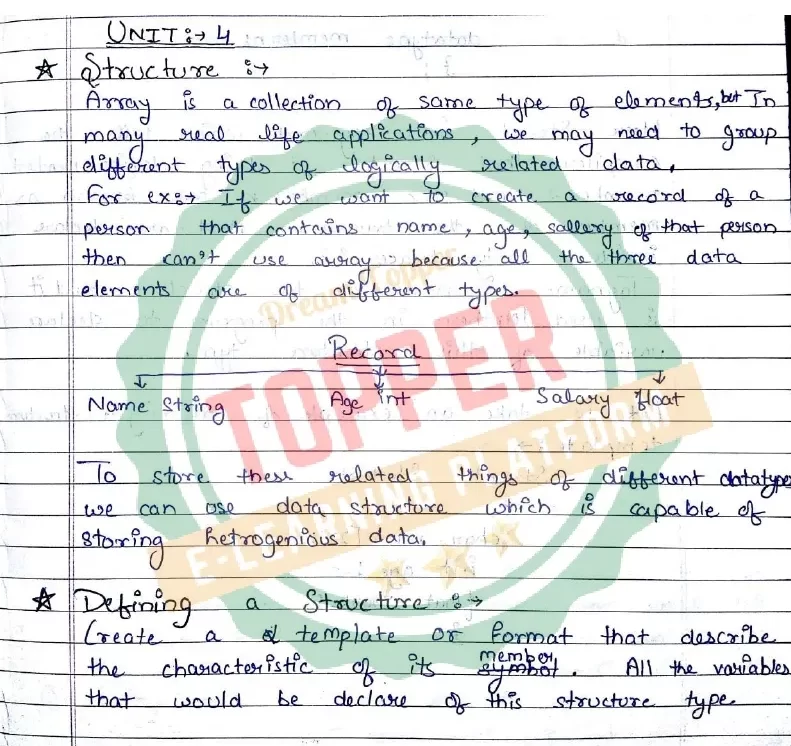 UNIT :→ 4
☆ Structure :→
Array is a collection of same type of elements, but In
many real life applications, we may need to group
different types of logically related data.
For ex :→ If we want to create a record of a
person that contains name, age, sallery of that person
then can't use array because all the three data
elements are of different types.
Record
Name String Age int Salary float
To store thess related things of different datatype
we can use data structure which is capable of
storing hetrogenious data.
☆ Defining a Structure :→
Create a template or format that describe
the characteristic of its member symbol. All the variables
that would be declare of this structure type.
Dream Topper
TOPPER
E-LEARNING PLATFORM